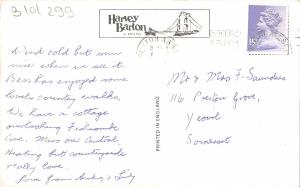 B lol 299
Harvey
Barton
OF BRISTOL
Wind cold but sun
nice when we see it.
Bess has enjoyed some
lovely country walks.
We have a cottage
overlooking
Cove. Miss our Central
Heating but countryside
really lovely.
Love from & Lily
PRINTED IN ENGLAND
Mr & Mrs F. Saunders
116 Preston Grove,
Yeovil
Somerset